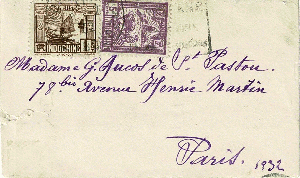 INDOCHINE
Madame G. Ducos de St Pastou.
78 bis Avenue Henri-Martin
Paris. 1932